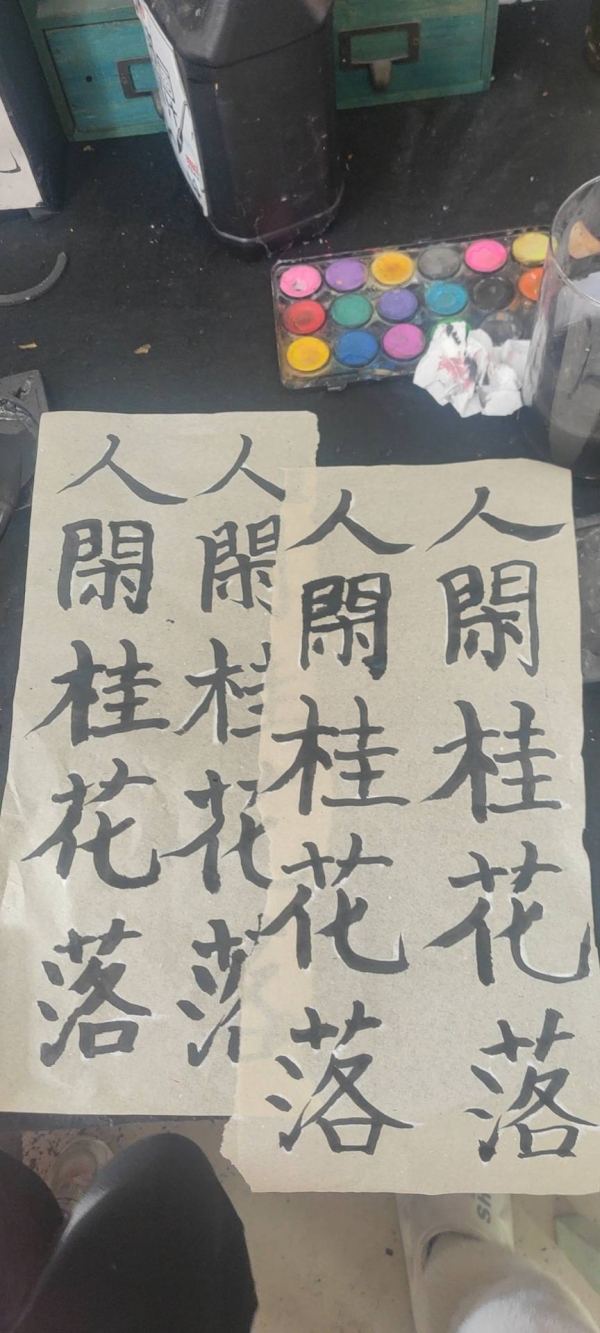 人閑桂花落
人閑桂花落
人閑桂花落
人閑桂花落